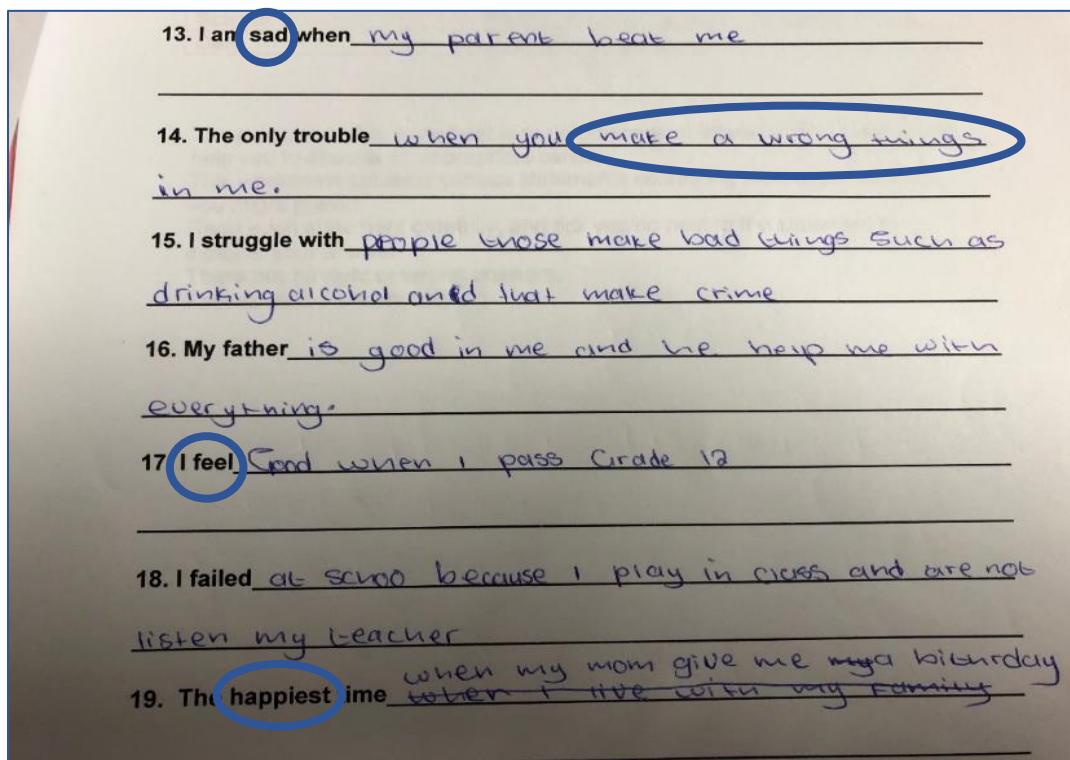 13. I am sad when my parent beat me
14. The only trouble when you make a wrong things
in me.
15. I struggle with people those make bad things such as
drinking alcohol and that make crime
16. My father is good in me and he help me with
everything.
17. I feel Good when i pass Grade 12
18. I failed at schoo because i play in class and are not
listen my teacher
when my mom give me a biturday
19. The happiest ime when i live with my family